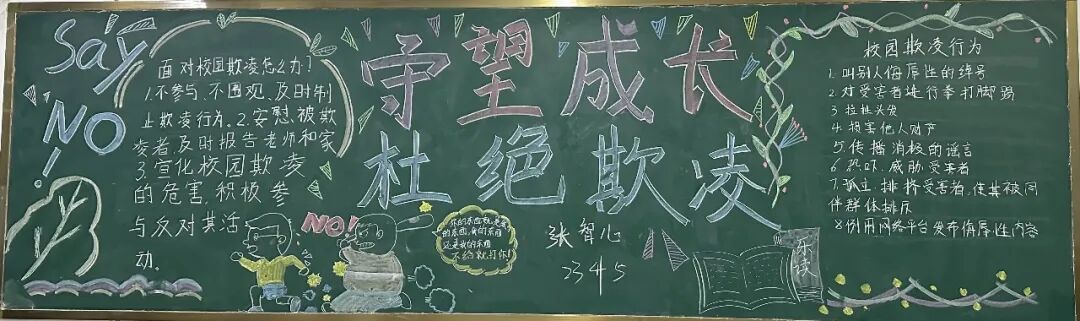 Say
NO!
面对校园欺凌怎么办?
1.不参与、不围观、及时制
止欺凌行为。2.安慰被欺
凌者,及时报告老师和家
3.宣化校园欺凌
的危害,积极参
与反对其活
动.
守望成长
杜绝欺凌
NO!
你的东西就是我
的东西,我的东西
还是我的东西
不给就打你!
张智心
2345
校园欺凌行为
1.叫别人侮辱性的绰号
2.对受害者进行拳打脚踢
3.拉扯头发
4.损害他人财产
5.传播消极的谣言
6.恐吓、威胁受害者
7.孤立、排挤受害者,使其被同
伴群体排斥
8.利用网络平台发布侮辱性内容